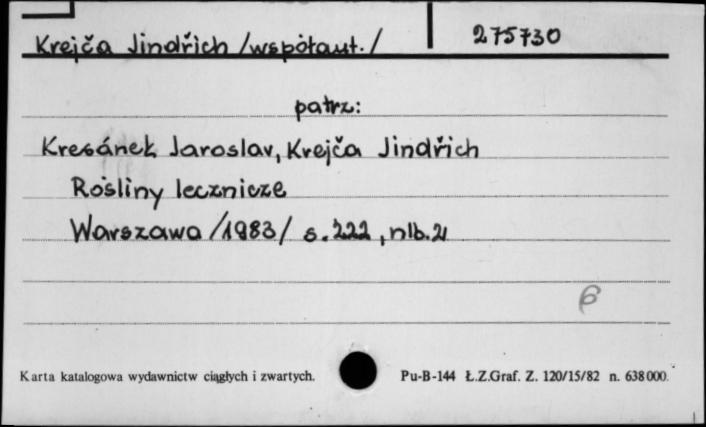 Krejča Jindřich /współaut./ 275730
patrz:
Kresánek Jaroslav, Krejča Jindřich
Rośliny lecznicze
Warszawa /1983/ s.222, nlb.21
6
Karta katalogowa wydawnictw ciągłych i zwartych. Pu-B-144 Ł.Z.Graf. Z. 120/15/82 n. 638000.